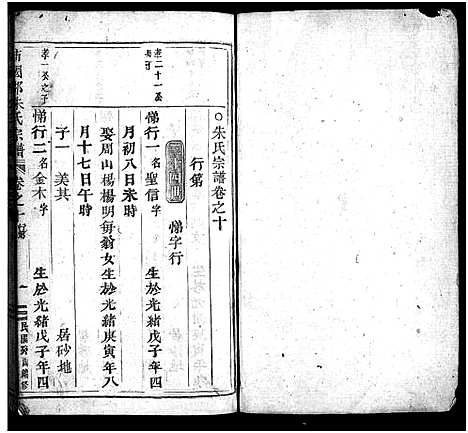 ○朱氏宗譜卷之十
行第
悌字行
孝二十一公
悌行一 名聖信字 生於光緒戊子年四
月初八日未時
娶周山楊楊明毎翁女生於光緒庚寅年八
月十七日午時
子一 美其 居砂地
孝一公之子
悌行二 名金木字 生於光緒戊子年四
朱氏宗譜
卷之十 行第
一
民國